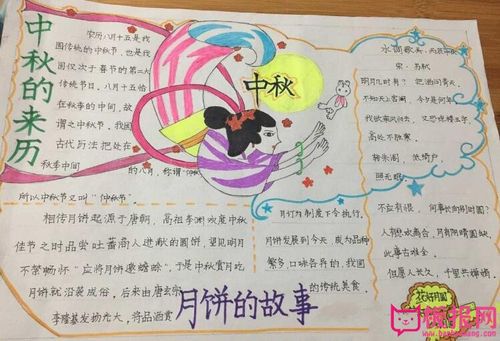 中秋的来历
农历八月十五是我
国传统的中秋节,也是我
国仅次于春节的第二大
传统节日。八月十五恰
在秋季的中间,故
谓之中秋节。我国
古代历法把处在
秋季中间
的八月,称谓“仲秋”
所以中秋节又叫“仲秋节”。
中秋
水调歌头·
宋:苏轼
明月几时有?把酒问青天。
不知天上宫阙,今夕是何年
我欲乘风归去,又恐琼楼玉宇,
高处不胜寒。
转朱阁,低绮户,
照无眠。
不应有恨,何事长向别时圆?
人有悲欢离合,月有阴晴圆缺,
此事古难全。
但愿人长久,千里共婵娟。
相传月饼起源于唐朝,高祖李渊欢度中秋
佳节之时品尝吐蕃商人进献的圆饼,望见明月
不禁畅怀“应将月饼邀蟾蜍”,于是中秋赏月吃
月饼就沿袭成俗,后来由唐玄宗
李隆基发扬光大,将品酒赏
月订为制度下令执行,
月饼发展到今天,成为品种
繁多,口味各异的,我国
的传统美食。
月饼的故事
花好月圆